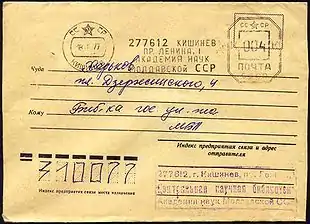 СС СР
277612 КИШИНЕВ
ПР. ЛЕНИНА, 1
АКАДЕМИЯ НАУК
МОЛДАВСКОЙ ССР
СС СР
004
ПОЧТА
Куда Харьков
пл. Дзержинского, 4
Кому Биб-ка гос. ун-та
МБА
Индекс предприятия связи и адрес
отправителя
310077
Индекс предприятия связи места назначения
277612, г. Кишинев,
Центральная научная библиотека
Академии наук Молдавской ССР